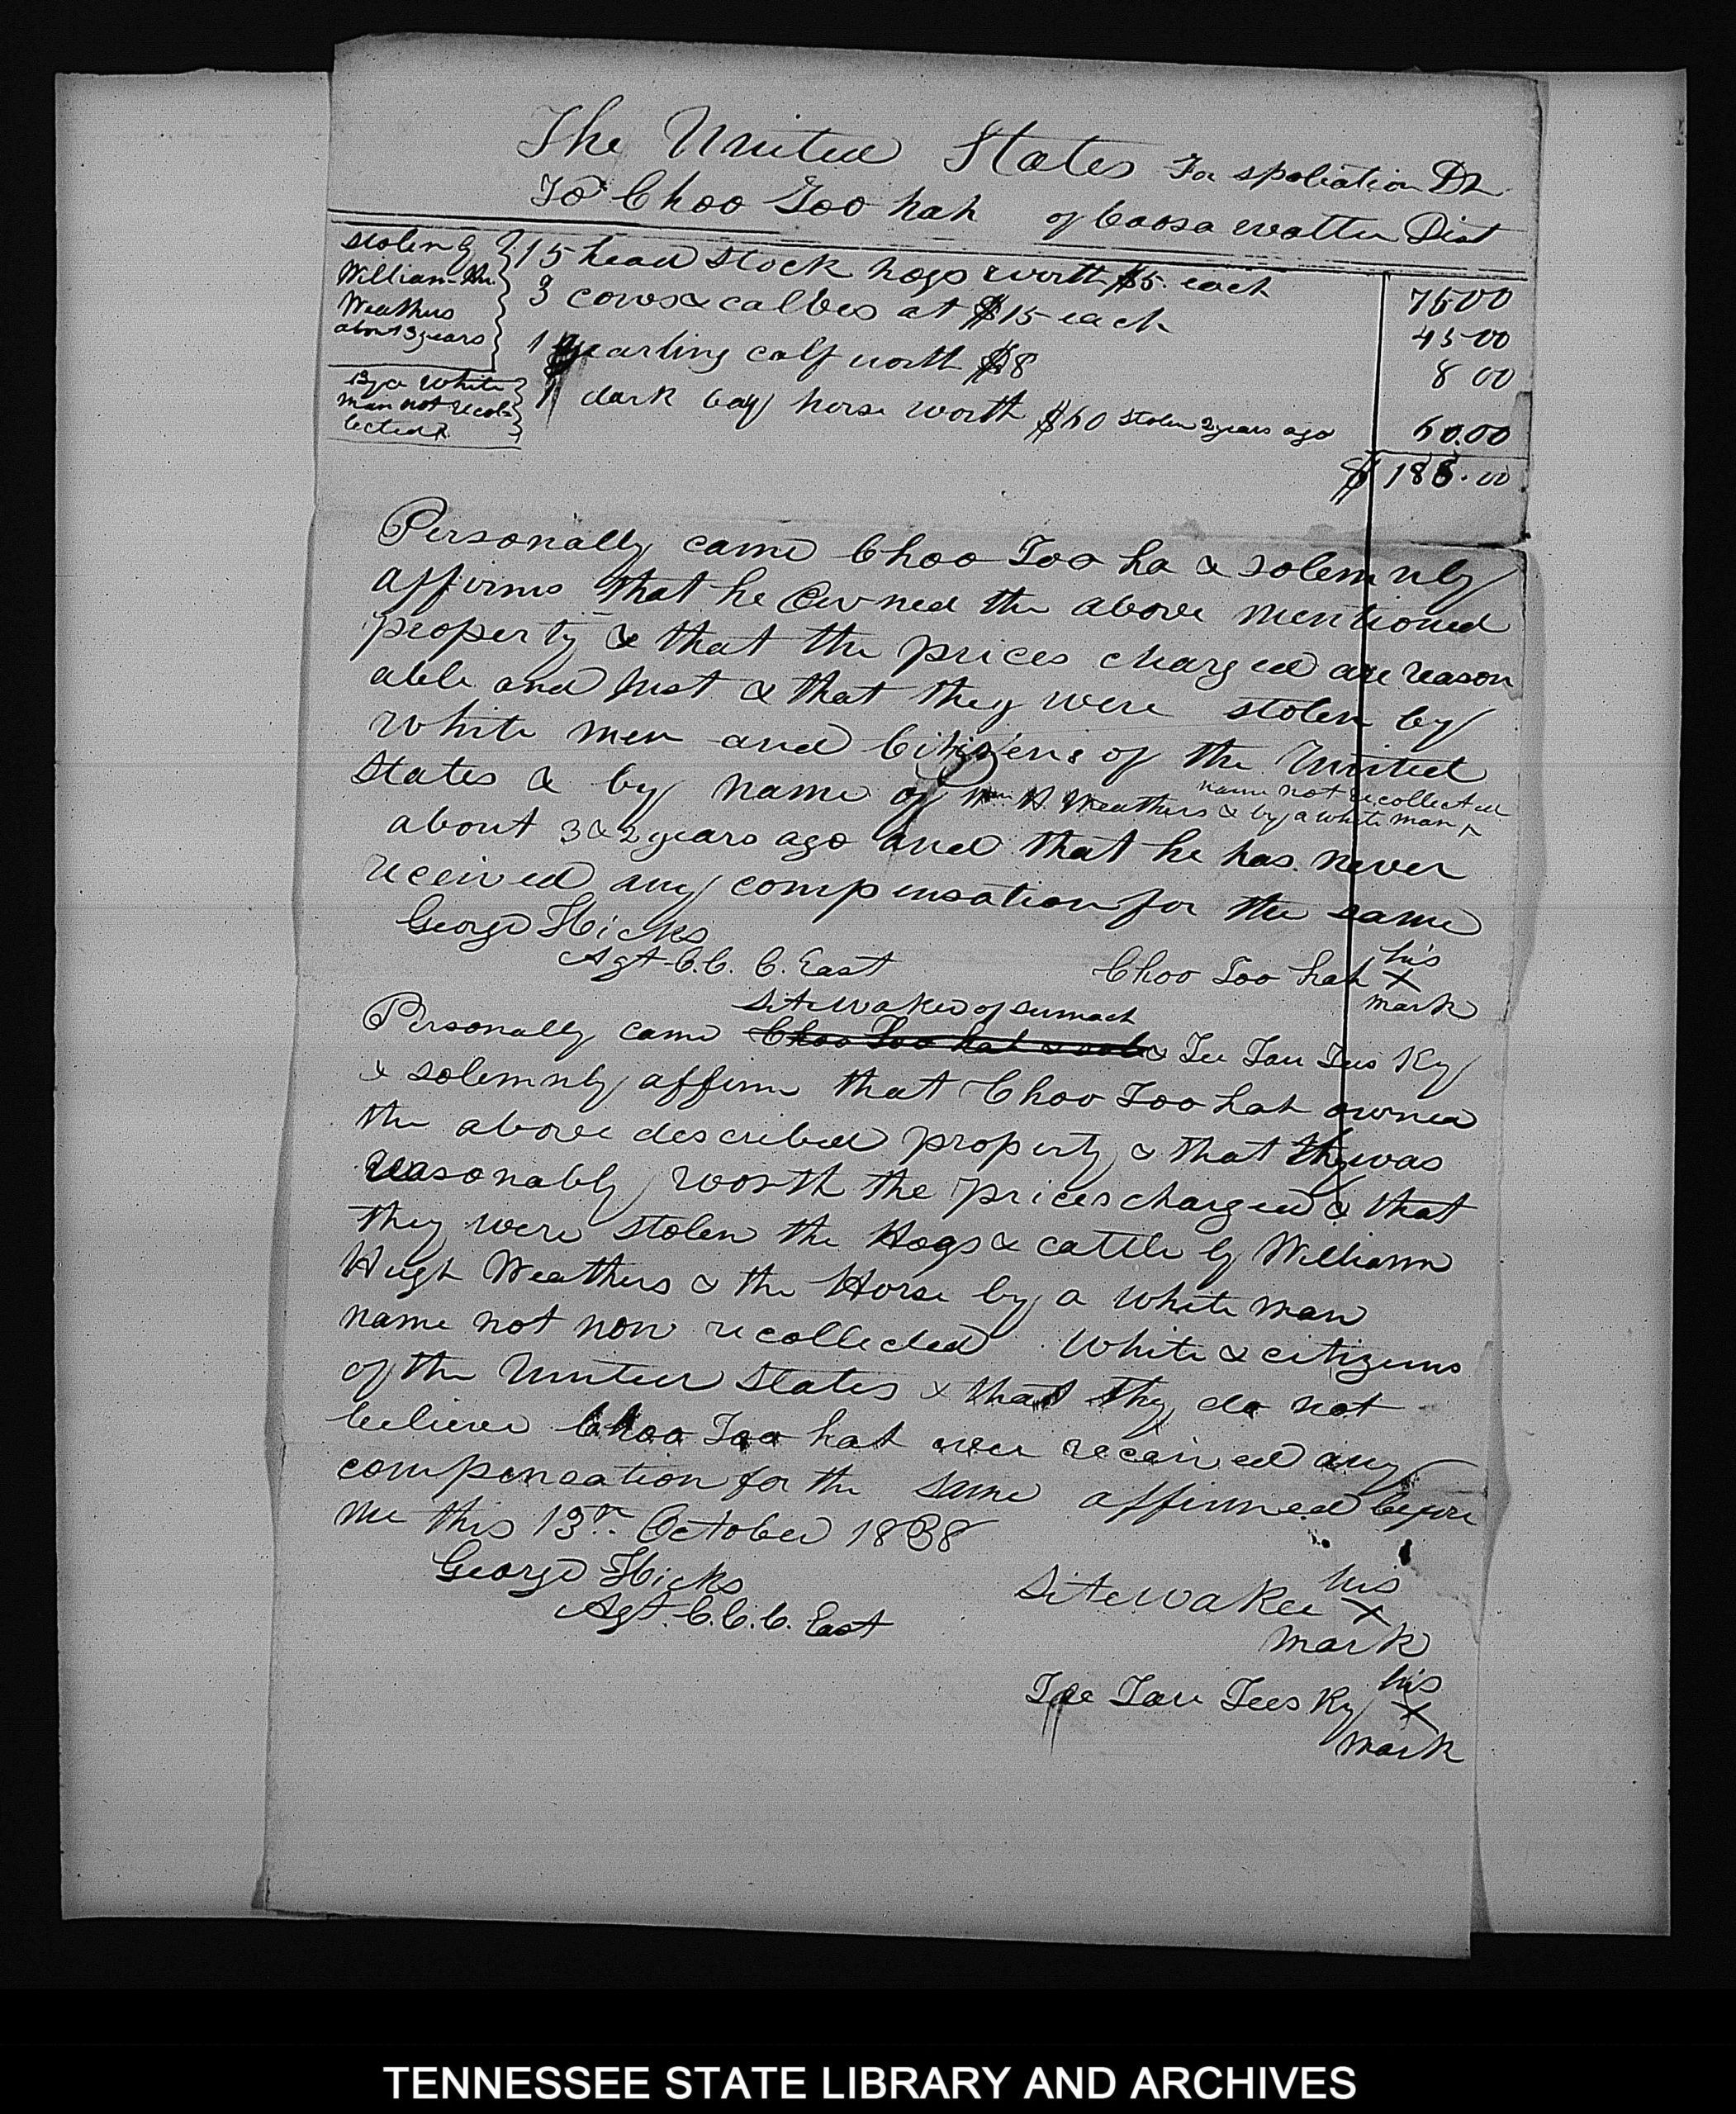 The United States For spoliation Dr
To Choo Too hah of Coosa wattee Dist
stolen by
William Hu.
Weathers
about 3 years
By a white
man not recol-
lected
15 head stock hogs worth $5. each 75 00
3 cows & calves at $15 each 45 00
1 yearling calf worth $8 8 00
1 dark bay horse worth $60 stolen 2 years ago 60.00
$ 188.00
Personally came Choo Too ha & solemnly
affirms that he owned the above mentioned
property & that the prices charged are reason
able and Just & that they were stolen by
white men and Citizens of the United
States & by name of Wm H Weathers & by a white man
name not recollected
about 3 & 2 years ago and that he has never
received any compensation for the same
George Hicks
Agt C.C. C. East
Choo Too hah his
x
mark
Sitewakee of Sumach
Personally came Choo Too hah & sol & Tee Tau Tees Ky
& solemnly affirm that Choo Too hah owned
the above described property & that they was
reasonably worth the prices charged & that
they were stolen the Hogs & cattle by William
Hugh Weathers & the Horse by a white man
name not now recollected white & citizens
of the United States & that they do not
believe Choo Too hah ever received any
compensation for the same affirmed before
me this 13th October 1838
George Hicks
Agt. C.C.C. East
Sitewakee his
x
mark
Tee Tau Tees Ky his
x
mark
TENNESSEE STATE LIBRARY AND ARCHIVES